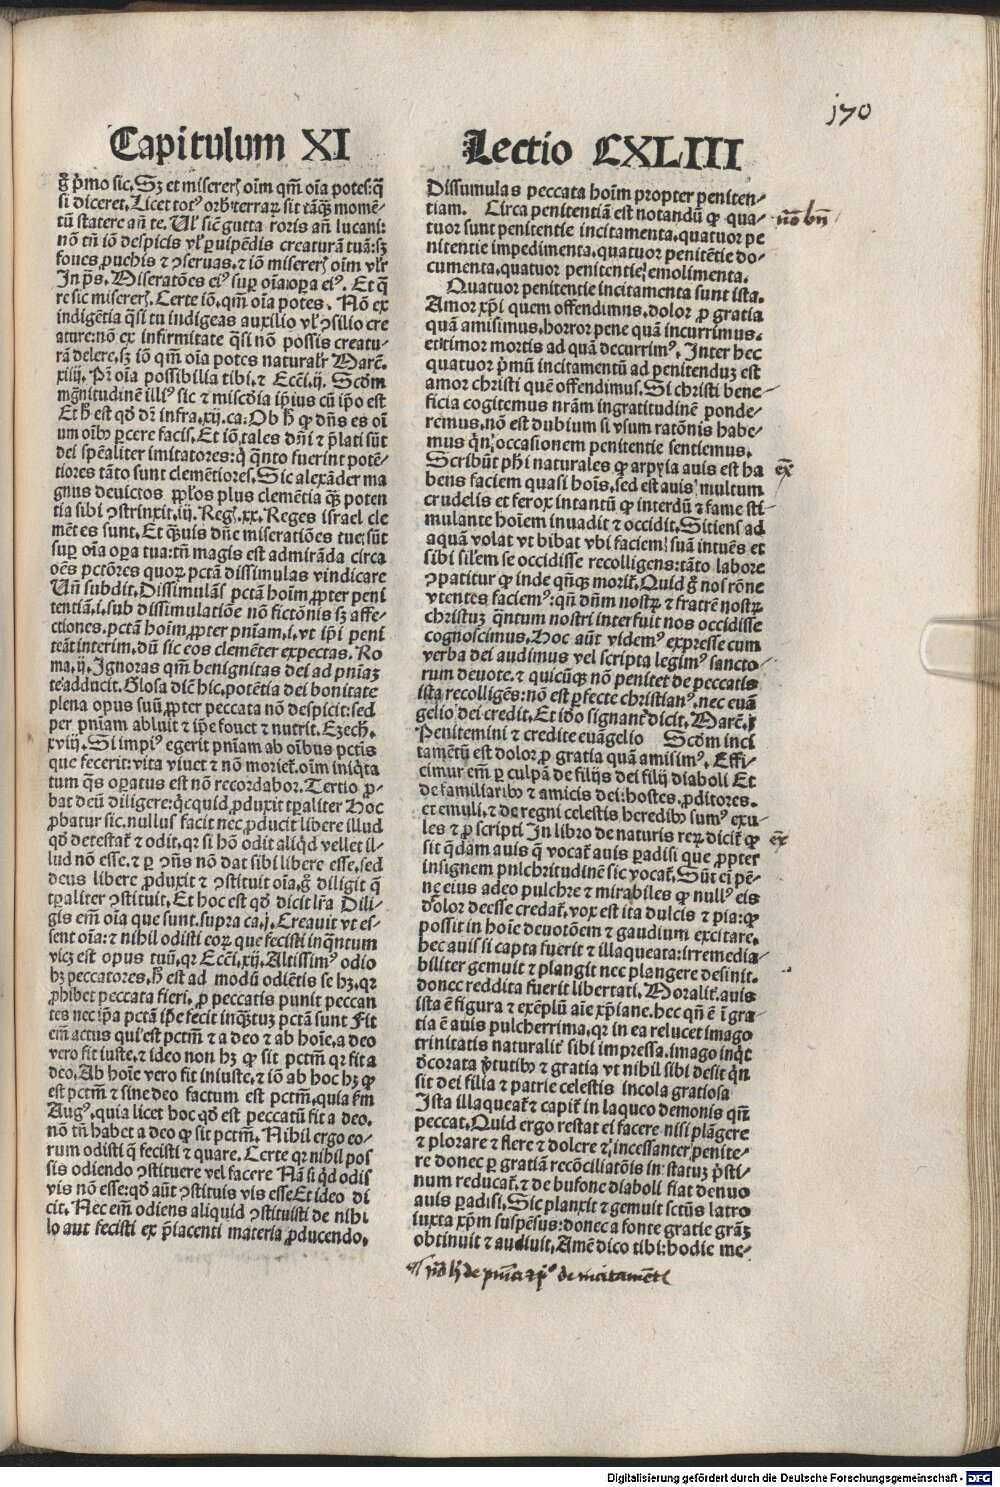 170
Capitulum XI
g̊ p̄mo sic. Sꝫ et misererꝭ oīm qm̄ oīa potes: q̄
si diceret. Licet totꝰ orbꝭ terraꝝ sit tāqꝫ momē-
tū statere añ te. Ul̓ sic̄ gutta roris añ lucani:
nō tn̄ iō despicis vl̓ ꝑuipēdis creaturā tuā: sꝫ
foues ꝓuehis ⁊ ꝯseruas. ⁊ iō misererꝭ oīm vl̓r
In ps̄. Miseratōes eiꝰ suꝑ oīa oꝑa eiꝰ. Et q̄
re sic misererꝭ. Certe iō. qm̄ oīa potes. Nō ex
indigētia q̄si tu indigeas auxilio vl̓ ꝯsilio cre
ature: nō ex infirmitate q̄si nō possis creatu-
rā delere. sꝫ iō qm̄ oīa potes naturalr̄ Marc̄.
xiiij. Pr̄ oīa possibilia tibi. ⁊ Ecc̄i. ij. Scd̄m
mgnitudinē illiꝰ sic ⁊ misc̄dia ip̄ius cū ip̄o est
Et h̄ est qd̄ dr̄ infra. xij. ca: Ob h̄ ꝙ dn̄s es oī
um oībꝰ ꝑcere facis. Et iō. tales dn̄i ⁊ p̄lati sūt
dei spēaliter imitatores: q̄ q̄nto fuerint potē-
tiores tāto sunt clemētiores. Sic alexāder ma
gnus deuictos ppl̓os plus clemētia qꝫ poten
tia sibi ꝯstrinxit. iij. Regꝭ. xx. Reges israel cle
mētes sunt. Et qꝫuis dn̄e miseratiōes tue sūt
suꝑ oīa oꝑa tua: tn̄ magis est admirāda circa
oēs pctōres quoꝝ pctā dissimulas vindicare
Un̄ subdit. Dissimulās pctā hoīm ꝓpter peni
tentiā. i. sub dissimulatiōe nō fictōnis sꝫ affe-
ctiones. pctā hoīm ꝓpter pnīam. i. vt ip̄i peni
teāt interim. dū sic eos clemēter expectas. Ro
ma. ij. Ignoras qm̄ benignitas dei ad pnīaꝫ
te adducit. Glosa dic̄ hic. potētia dei bonitate
plena opus suū ꝓpter peccata nō despicit: sed
per pnīam abluit ⁊ ip̄e fouet ⁊ nutrit. Ezech.
xviij. Si impiꝰ egerit pnīam ab oībus pctīs
que fecerit: vita viuet ⁊ nō moriet̄. oīm iniq̄ta
tum q̄s oꝑatus est nō recordabor. Tertio ꝓ-
bat deū diligere: q̄cquid ꝓduxit tꝑaliter Hoc
ꝓbatur sic. nullus facit nec ꝓducit libere illud
qd̄ detestat̄ ⁊ odit. qꝛ si hō odit aliqd̄ vellet il-
lud nō esse. ⁊ ꝑ ꝯn̄s nō dat sibi libere esse. sed
deus libere ꝓduxit ⁊ ꝯstituit oīa. g̊ diligit q̄
tꝑaliter ꝯstituit. Et hoc est qd̄ dicit lr̄a Dili-
gis em̄ oīa que sunt. supra ca. j. Creauit vt es-
sent oīa: ⁊ nihil odisti eoꝝ que fecisti inq̄ntum
vicꝫ est opus tuū. qꝛ Ecc̄i. xij. Altissimꝰ odio
hꝫ peccatores. h̄ est ad modū odiētis se hꝫ. qꝛ
ꝓhibet peccata fieri. ꝓ peccatis punit peccan
tes nec ip̄a pctā ip̄e fecit inqꝫtuꝫ pctā sunt Fit
em̄ actus qui est pctm̄ ⁊ a deo ⁊ ab hoīe. a deo
vero fit iuste. ⁊ ideo non hꝫ ꝙ sit pctm̄ qꝛ fit a
deo. Ab hoīe vero fit iniuste. ⁊ iō ab hoc hꝫ ꝙ
est pctm̄ ⁊ sine deo factum est pctm̄. quia fm̄
Augꝰ. quia licet hoc qd̄ est peccatū fit a deo.
nō tn̄ habet a deo ꝙ sit pctm̄. Nihil ergo eo-
rum odisti q̄ fecisti ⁊ quare. Certe qꝛ nihil pos
sis odiendo ꝯstituere vel facere Nā si qd̄ odis
vis nō esse: qd̄ aūt ꝯstituis vis esse Et ideo di
cit. Nec em̄ odiens aliquid ꝯstituisti de nihi
lo aut fecisti ex p̄iacenti materia ꝓducendo.
Lectio CXLIII
Dissumulas peccata hoīm propter peniten-
tiam. Circa penitentiā est notandū ꝙ qua-
tuor sunt penitentie incitamenta. quatuor pe
nitentie impedimenta. quatuor penitētie do-
cumenta. quatuor penitentie emolimenta.
Quatuor penitentie incitamenta sunt ista.
Amor xp̄i quem offendimns. dolor ꝓ gratia
quā amisimus. horror pene quā incurrimus.
et timor mortis ad quā decurrimꝰ. Inter hec
quatuor p̄mū incitamentū ad penitenduꝫ est
amor christi quē offendimus. Si christi bene-
ficia cogitemus nrām ingratitudinē ponde-
remus. nō est dubium si vsum ratōnis habe-
mus qn̄ occasionem penitentie sentiemus.
Scribūt ph̄i naturales ꝙ arpyia auis est ha
bens faciem quasi hoīs. sed est auis multum
crudelis et ferox intantū ꝙ interdū ⁊ fame sti-
mulante hoīem inuadit ⁊ occidit. Sitiens ad
aquā volat vt bibat vbi faciem suā intuēs et
sibi silem se occidisse recolligens: tāto labore
ꝯpatitur ꝙ inde qn̄qꝫ morit̄. Quid g̊ nos rōne
vtentes faciemꝰ: qn̄ dn̄m nostꝝ ⁊ fratrē nostꝝ
christuꝫ q̄ntum nostri interfuit nos occidisse
cognoscimus. Hoc aūt videmꝰ expresse cum
verba dei audimus vel scripta legimꝰ sancto-
rum deuote. ⁊ quicūqꝫ nō penitet de peccatis
ista recolligēs: nō est ꝑfecte christianꝰ. nec euā
gelio dei credit. Et ido signant̄ dicit. Marc̄. j
Penitemini ⁊ credite euāgelio Scd̄m inci
tamētū est dolor ꝓ gratia quā amisimꝰ. Effi-
cimur em̄ ꝑ culpā de filijs dei filij diaboli Et
de familiaribꝰ ⁊ amicis dei: hostes. ꝓditores.
et emuli. ⁊ de regni celestis heredibꝰ sumꝰ exu-
les ⁊ ꝓscripti In libro de naturis reꝝ dicit̄ ꝙ
sit q̄dam auis q̄ vocat̄ auis ꝑadisi que ꝓpter
insignem pnlchritudinē sic vocat̄. Sūt ei pē-
ne eius adeo pulchre ⁊ mirabiles ꝙ nullꝰ eis
color deesse credat̄. vox est ita dulcis ⁊ pia: ꝙ
possit in hoīe deuotōem ⁊ gaudium excitare.
hec auis si capta fuerit ⁊ illaqueata: irremedia-
biliter gemuit ⁊ plangit nec plangere desinit.
donec reddita fuerit libertati. Moralit̄. auis
ista ē figura ⁊ exēplū aīe xp̄iane. hec qn̄ ē ī gra-
tia ē auis pulcherrima. qꝛ in ea relucet imago
trinitatis naturalit̄ sibi impressa. imago inq̄t
dcorata v̓tutibꝰ ⁊ gratia vt nihil sibi desit qn̄
sit dei filia ⁊ patrie celestis incola gratiosa
Ista illaqueat̄ ⁊ capit̄ in laqueo demonis qn̄
peccat. Quid ergo restat ei facere nisi plāgere
⁊ plorare ⁊ flere ⁊ dolere ⁊ incessanter penite-
re donec ꝑ gratiā recōciliatōis in statuꝫ p̄sti-
num reducat̄. ⁊ de bufone diaboli fiat denuo
auis ꝑadisi. Sic planxit ⁊ gemuit sctūs latro
iuxta xp̄m suspēsus: donec a fonte gratie grāꝫ
obtinuit ⁊ audiuit. Amē dico tibi: hodie me-
Digitalisierung gefördert durch die Deutsche Forschungsgemeinschaft - DFG